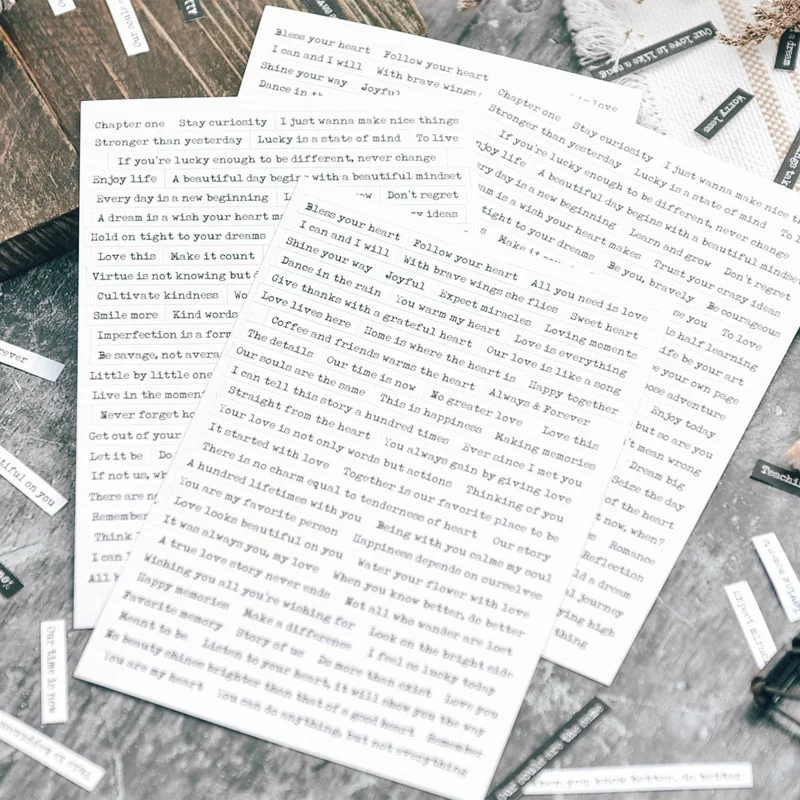 Bless your heart Follow your heart
I can and I will With brave wings
Shine your way Joyful
Dance in
Chapter one Stay curiosity I just wanna make nice things
Stronger than yesterday Lucky is a state of mind To live
If you're lucky enough to be different, never change
Enjoy life A beautiful day begins with a beautiful mindset
Every day is a new beginning Don't regret
A dream is a wish your heart ideas
Hold on tight to your dreams
Love this Make it count
Virtue is not knowing but
Cultivate kindness
Smile more Kind words
Imperfection is a
Be savage, not
Little by little one
Live in the
Never forget
Get out of your
Let it be Do
If not us,
There are
Remember
Think
I can
All
Chapter one Stay curiosity I just wanna make nice
Stronger than yesterday Lucky is a state of mind To
If you're lucky enough to be different, never change
Enjoy life A beautiful day begins with a beautiful mindset
day is a new beginning Learn and grow Don't regret
is a wish your heart makes Trust your crazy ideas
tight to your dreams Be you, bravely Be courageous
Make it you To love
is half learning
life be your art
your own page
adventure
Enjoy today
but so are you
mean wrong
Dream big
Seize the day
of the heart
now, when?
Romance
Reflection
a dream
journey
high
thing
Bless your heart Follow your heart All you need is love
I can and I will With brave wings she flies Sweet heart
Shine your way Joyful Expect miracles Loving moments
Dance in the rain You warm my heart Love is everything
Give thanks with a grateful heart Our love is like a song
Love lives here Home is where the heart is Happy together
Coffee and friends warms the heart Always & Forever
The details Our time is now No greater love Love this
Our souls are the same This is happiness Making memories
I can tell this story a hundred times Ever since I met you
Straight from the heart You always gain by giving love
Your love is not only words but actions Thinking of you
It started with love Together is our favorite place to be
There is no charm equal to tenderness of heart Our story
A hundred lifetimes with you Being with you calms my soul
You are my favorite person Happiness depends on ourselves
Love looks beautiful on you Water your flower with love
It was always you, my love When you know better, do better
A true love story never ends Not all who wander are lost
Wishing you all you're wishing for Look on the bright side
Happy memories Make a difference I feel so lucky today
Favorite memory Story of us Do more than exist Love you
Meant to be Listen to your heart, it will show you the way
No beauty shines brighter than that of a good heart Remember
You are my heart You can do anything, but not everything
Our love is like a song
Worry less
a dream
Our time is now
Our souls are the same
When you know better, do better